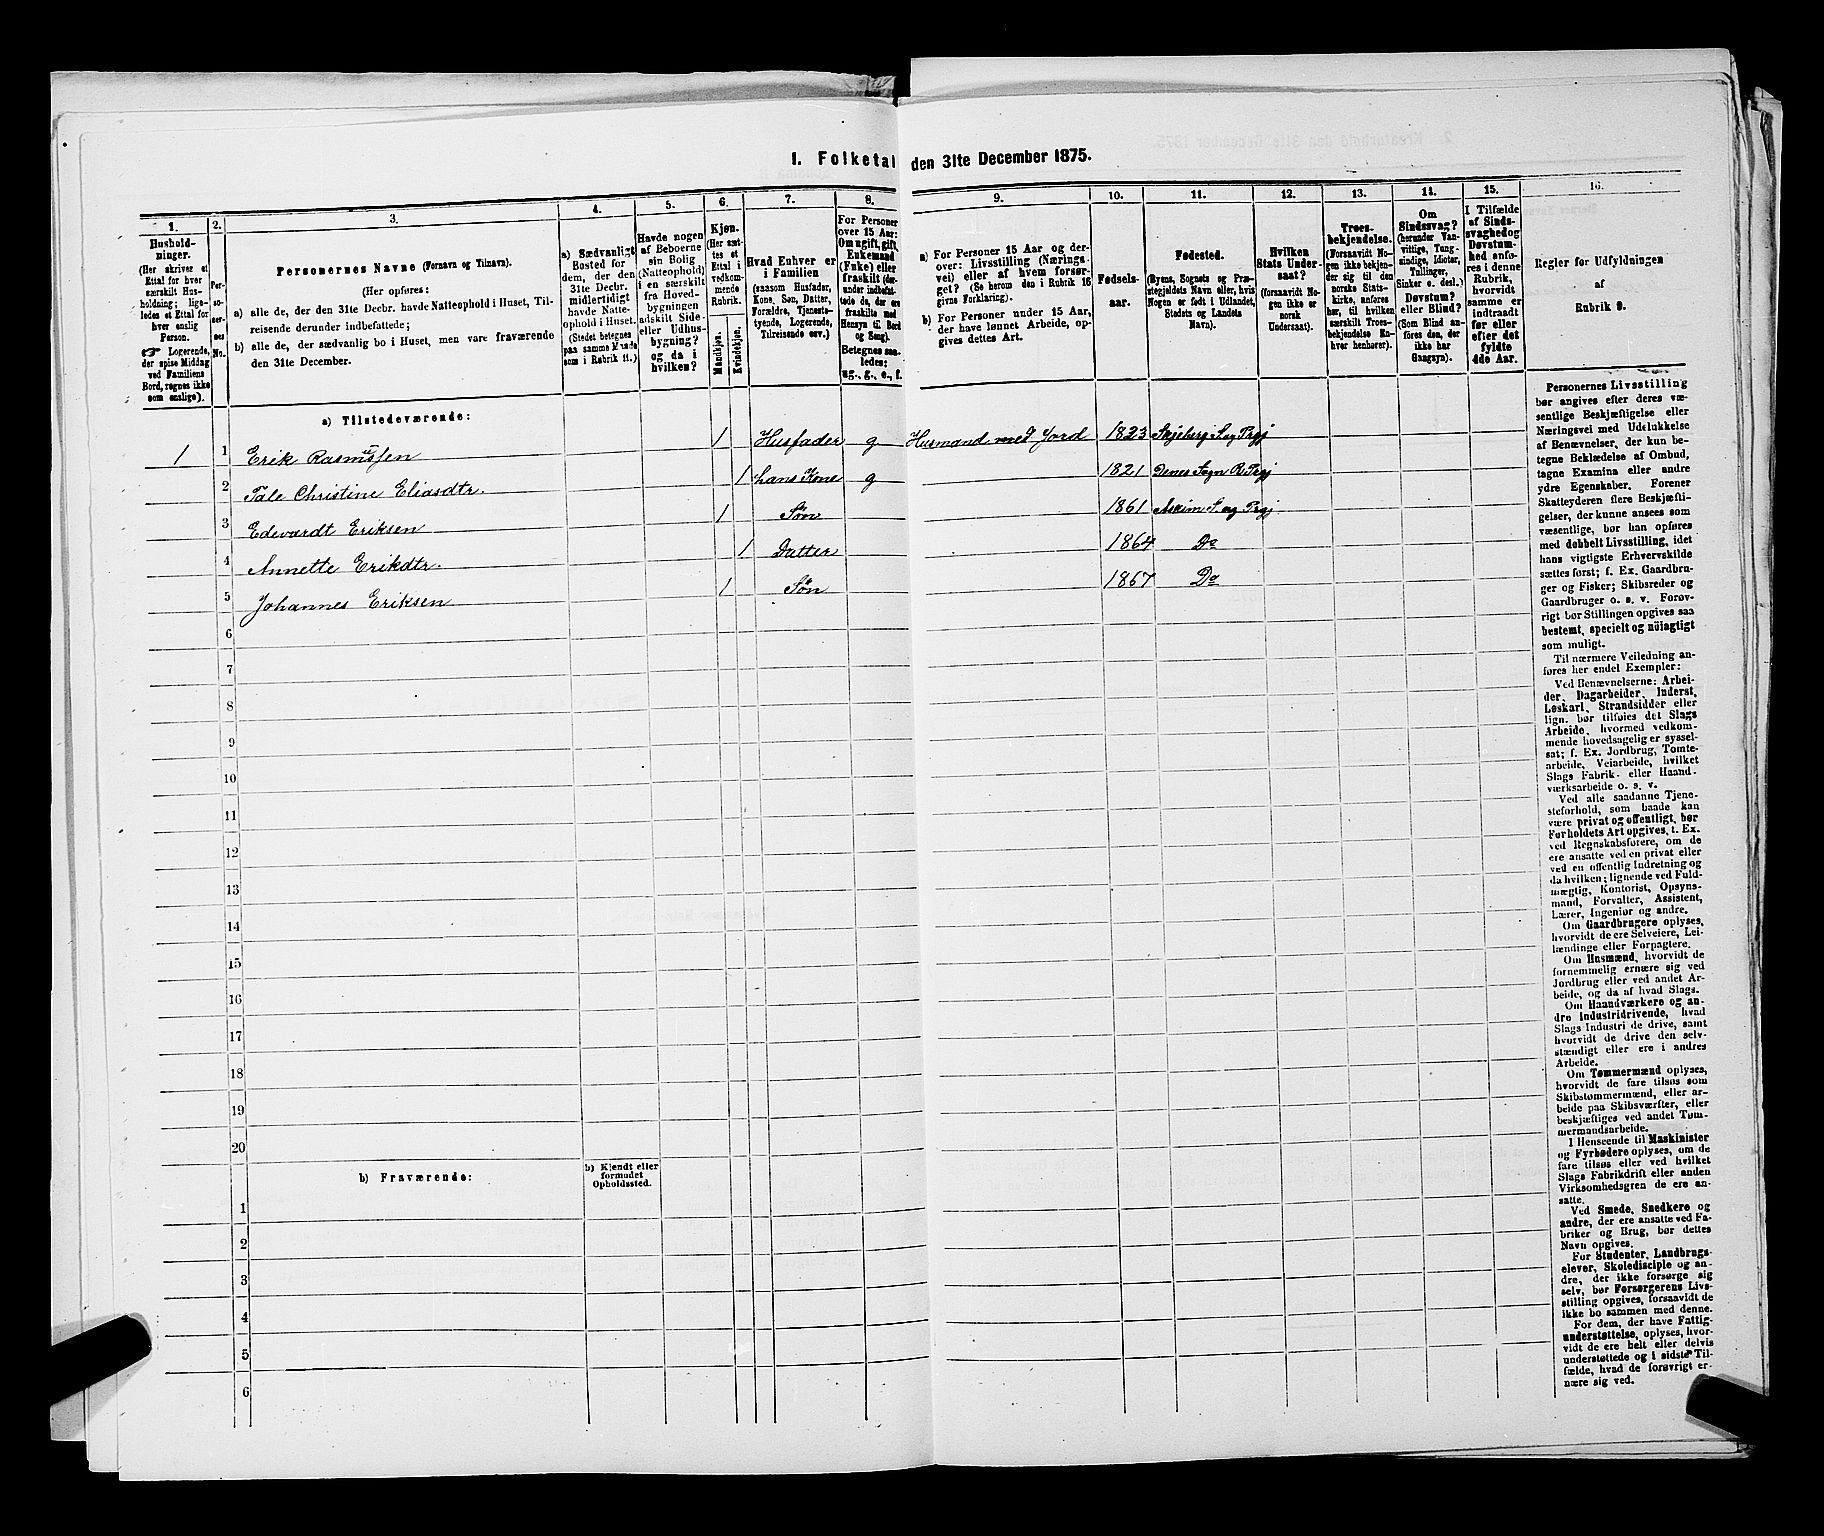 1. Folketal den 31te December 1875.
1.
Hushold-
ninger.
(Her skrives et
Ettal for hver
særskilt Hus-
holdning; lige-
ledes et Ettal for
hver enslig
Person.
☞ Logerende,
der spise Middag
ved Familiens
Bord, regnes ikke
som enslige).
2.
Per-
so-
ner-
nes
No.
3.
Personernes Navne (Fornavn og Tilnavn).
(Her opføres:
a) alle de, der den 31te Decbr. havde Natteophold i Huset, Til-
reisende derunder indbefattede;
b) alle de, der sædvanlig bo i Huset, men vare fraværende
den 31te December.
4.
a) Sædvanligt
Bosted for
dem, der den
31te Decbr.
midlertidigt
havde Natte-
ophold i Huset.
(Stedet betegnes
paa samme Maade
som i Rubrik 11.)
5.
Havde nogen
af Beboerne
sin Bolig
(Natteophold)
i en særskilt
fra Hoved-
bygningen
adskilt Side-
eller Udhus-
bygning?
og da i
hvilken?
6.
Kjøn.
(Her sæt-
tes et
Ettal i
vedkom-
mende
Rubrik.
Mandkjøn.
Kvindekjøn.
7.
Hvad Enhver er
i Familien
(saasom Husfader,
Kone, Søn, Datter,
Forældre, Tjeneste-
tyende, Logerende,
Tilreisende osv.)
8.
For Personer
over 15 Aar:
Om ugift, gift,
Enkemand
(Enke) eller
fraskilt (der-
under indbefat-
tede de, der ere
fraskilte med
Hensyn til Bord
og Seng).
Betegnes saa-
ledes:
ug., g., e., f.
9.
a) For Personer 15 Aar og der-
over: Livsstilling (Nærings-
vei) eller af hvem forsør-
get? (Se herom den i Rubrik 16
givne Forklaring).
b) For Personer under 15 Aar,
der have lønnet Arbeide, op-
gives dettes Art.
10.
Fødsels-
aar.
11.
Fødested.
(Byens, Sognets og Præ-
stegjeldets Navn eller, hvis
Nogen er født i Udlandet,
Stedets og Landets
Navn).
12.
Hvilken
Stats Under-
saat?
(forsaavidt No-
gen ikke er
norsk
Undersaat).
13.
Troes-
bekjendelse.
(Forsaavidt No-
gen ikke bekjen-
der sig til den
norske Stats-
kirke, anføres
her, til hvilken
særskilt Troes-
bekjendelse En-
hver henhører).
14.
Om
Sindssvag?
(herunder Van-
vittige, Tung-
sindige, Idioter,
Tullinger,
Sinker o. desl.)
Døvstum?
eller Blind?
(Som Blind an-
føres den, der
ikke har
Gangsyn).
15.
I Tilfælde
af Sinds-
svaghed og
Døvstum-
hed anfø-
res i denne
Rubrik,
hvorvidt
samme er
indtraadt
før eller
efter det
fyldte
4de Aar.
16.
Regler for Udfyldningen
af
Rubrik 9.
a) Tilstedeværende:
1 1 Erik Rasmussen 1 Husfader g Husmand med Jord 1823 Skjeberg S. og Prgj
2 Tale Christine Eliasdtr. 1 hans Kone g 1821 Denes Sogn R. Prgj
3 Edevardt Eriksen 1 Søn 1861 Askim S. og Prgj
4 Annette Erikdtr. 1 Datter 1864 Do
5 Johannes Eriksen 1 Søn 1867 Do
6
7
8
9
10
11
12
13
14
15
16
17
18
19
20
b) Fraværende:
b) Kjendt eller
formodet
Opholdssted.
1
2
3
4
5
6
Personernes Livsstilling
bør angives efter deres væ-
sentlige Beskjæftigelse eller
Næringsvei med Udelukkelse
af Benævnelser, der kun be-
tegne Beklædelse af Ombud,
tagne Examina eller andre
ydre Egenskaber. Forener
Skatteyderen flere Beskjæfti-
gelser, der kunne ansees som
væsentlige, bør han opføres
med dobbelt Livsstilling, idet
hans vigtigste Erhvervskilde
sættes først; f. Ex. Gaardbru-
ger og Fisker; Skibsreder og
Gaardbruger o. s. v. Forøv-
rigt bør Stillingen opgives saa
bestemt, specielt og nöiagtigt
som muligt.
Til nærmere Veiledning an-
føres her endel Exempler:
Ved Benævnelserne: Arbei-
der, Dagarbeider, Inderst,
Løskarl, Strandsidder eller
lign. bør tilføies det Slags
Arbeide, hvormed vedkom-
mende hovedsagelig er syssel-
sat; f. Ex. Jordbrug, Tomte-
arbeide, Veiarbeide, hvilket
Slags Fabrik- eller Haand-
værksarbeide o. s. v.
Ved alle saadanne Tjene-
steforhold, som baade kan
være privat og offentligt, bør
Forholdets Art opgives, f. Ex.
ved Regnskabsførere, om de
ere ansatte ved en privat eller
ved en offentlig Indretning og
da hvilken; lignende ved Fuld-
mægtig, Kontorist, Opsyns-
mand, Forvalter, Assistent,
Lærer, Ingeniør og andre.
Om Gaardbrugere oplyses,
hvorvidt de ere Selveiere, Lei-
lændinge eller Forpagtere.
Om Husmænd, hvorvidt de
fornemmelig ernære sig ved
Jordbrug eller ved andet Ar-
beide, og da af hvad Slags.
Om Haandværkere og an-
dre Industridrivende, hvad
Slags Industri de drive, samt
hvorvidt de drive den selv-
stændigt eller ere i andres
Arbeide.
Om Tømmermænd oplyses,
hvorvidt de fare tilsøs som
Skibstømmermænd, eller ar-
beide paa Skibsværfter, eller
beskjæftiges ved andet Tøm-
mermandsarbeide.
I Henseende til Maskinister
og Fyrbødere oplyses, om de
fare tilsøs eller ved hvilket
Slags Fabrikdrift eller anden
Virksomhedsgren de ere an-
satte.
Ved Smede, Snedkere og
andre, der ere ansatte ved Fa-
briker og Brug, bør dettes
Navn opgives.
For Studenter, Landbrugs-
elever, Skoledisciple og an-
dre, der ikke forsørge sig
selv, bør Forsørgerens Livs-
stilling opgives, forsaavidt de
ikke bo sammen med denne.
For dem, der have Fattig-
understøttelse, oplyses, hvor-
vidt de ere helt eller delvis
understøttede og i sidste Til-
fælde, hvad de forøvrigt er-
nære sig ved.